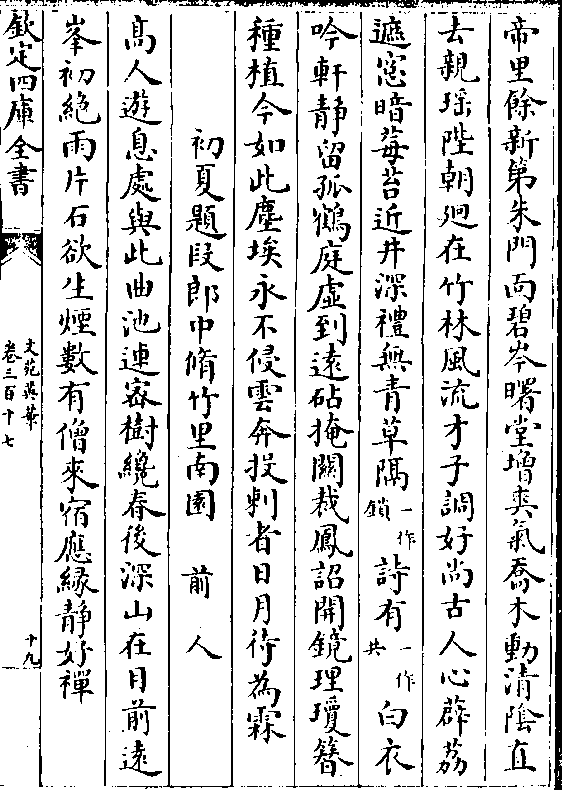 帝里餘新第朱門面碧岑曙堂增爽氣喬木動清陰直
去親瑶陛朝廻在竹林風流才子調好尚古人心薜荔
遮窓暗莓苔近井深禮無青草隔一作鎖詩有一作共白衣
吟軒静留孤鶴庭虛到遠砧掩關裁鳳詔開鏡理瓊簪
種植今如此塵埃永不侵雲奔投刺者日月待為霖
初夏題段郎中脩竹里南園 前人
髙人遊息處與此曲池連宻樹纔春後深山在目前遠
峯初絶雨片石欲生煙數有僧來宿應緣静好禪
欽定四庫全書
文苑英華
卷三百十七
十九